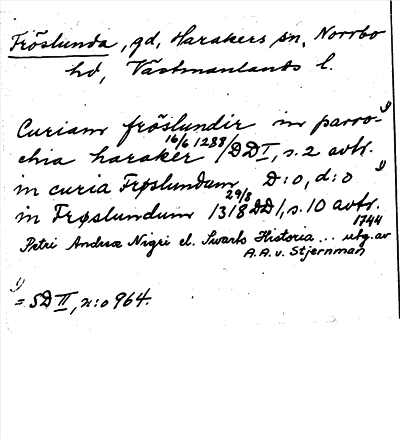 Fröslunda, gd, Harakers sn, Norrbo
hd, Västmanlands l.
Curiam fröslundir in parro- 1)
chia haraker 16/6 1288 /DD I, s. 2 avtr.
in curia Frøslundum, D:o, d:o 1)
in Frøslundum 29/8 1318 DD 1, s. 10 avtr.
Petri Andreæ Nigri el. Swarts Historia ... utg. av 1744
A.A. v. Stjernman
1)
= SD II, n:o 964.